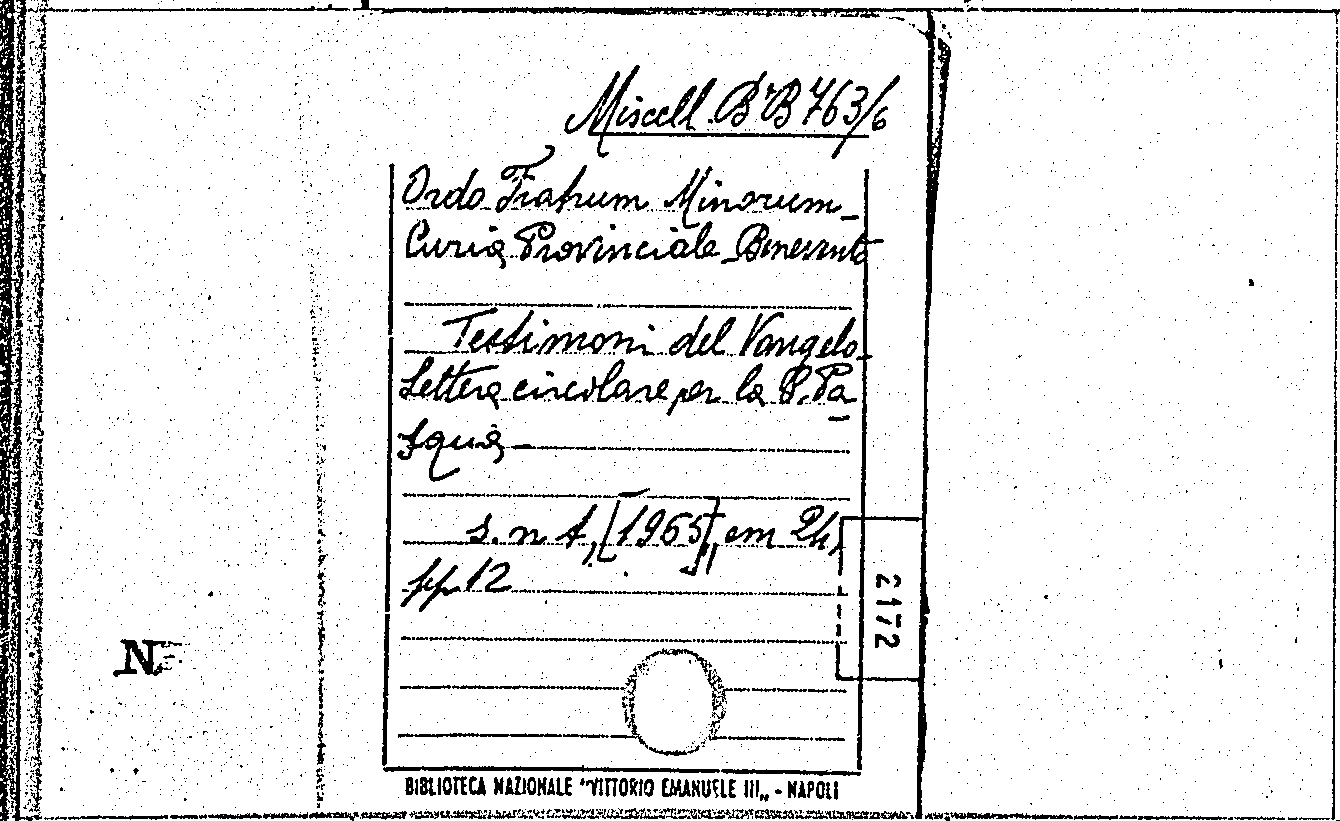 Miscell. B'B 763/6
Ordo Fratrum Minorum_
Curia Provinciale_Benevento
Testimoni del Vangelo_
Lettera circolare per la S. Pa
squa_
s. n. t, [1965], cm 24,
pp 12
2172
N
BIBLIOTECA NAZIONALE "VITTORIO EMANUELE III„ - NAPOLI